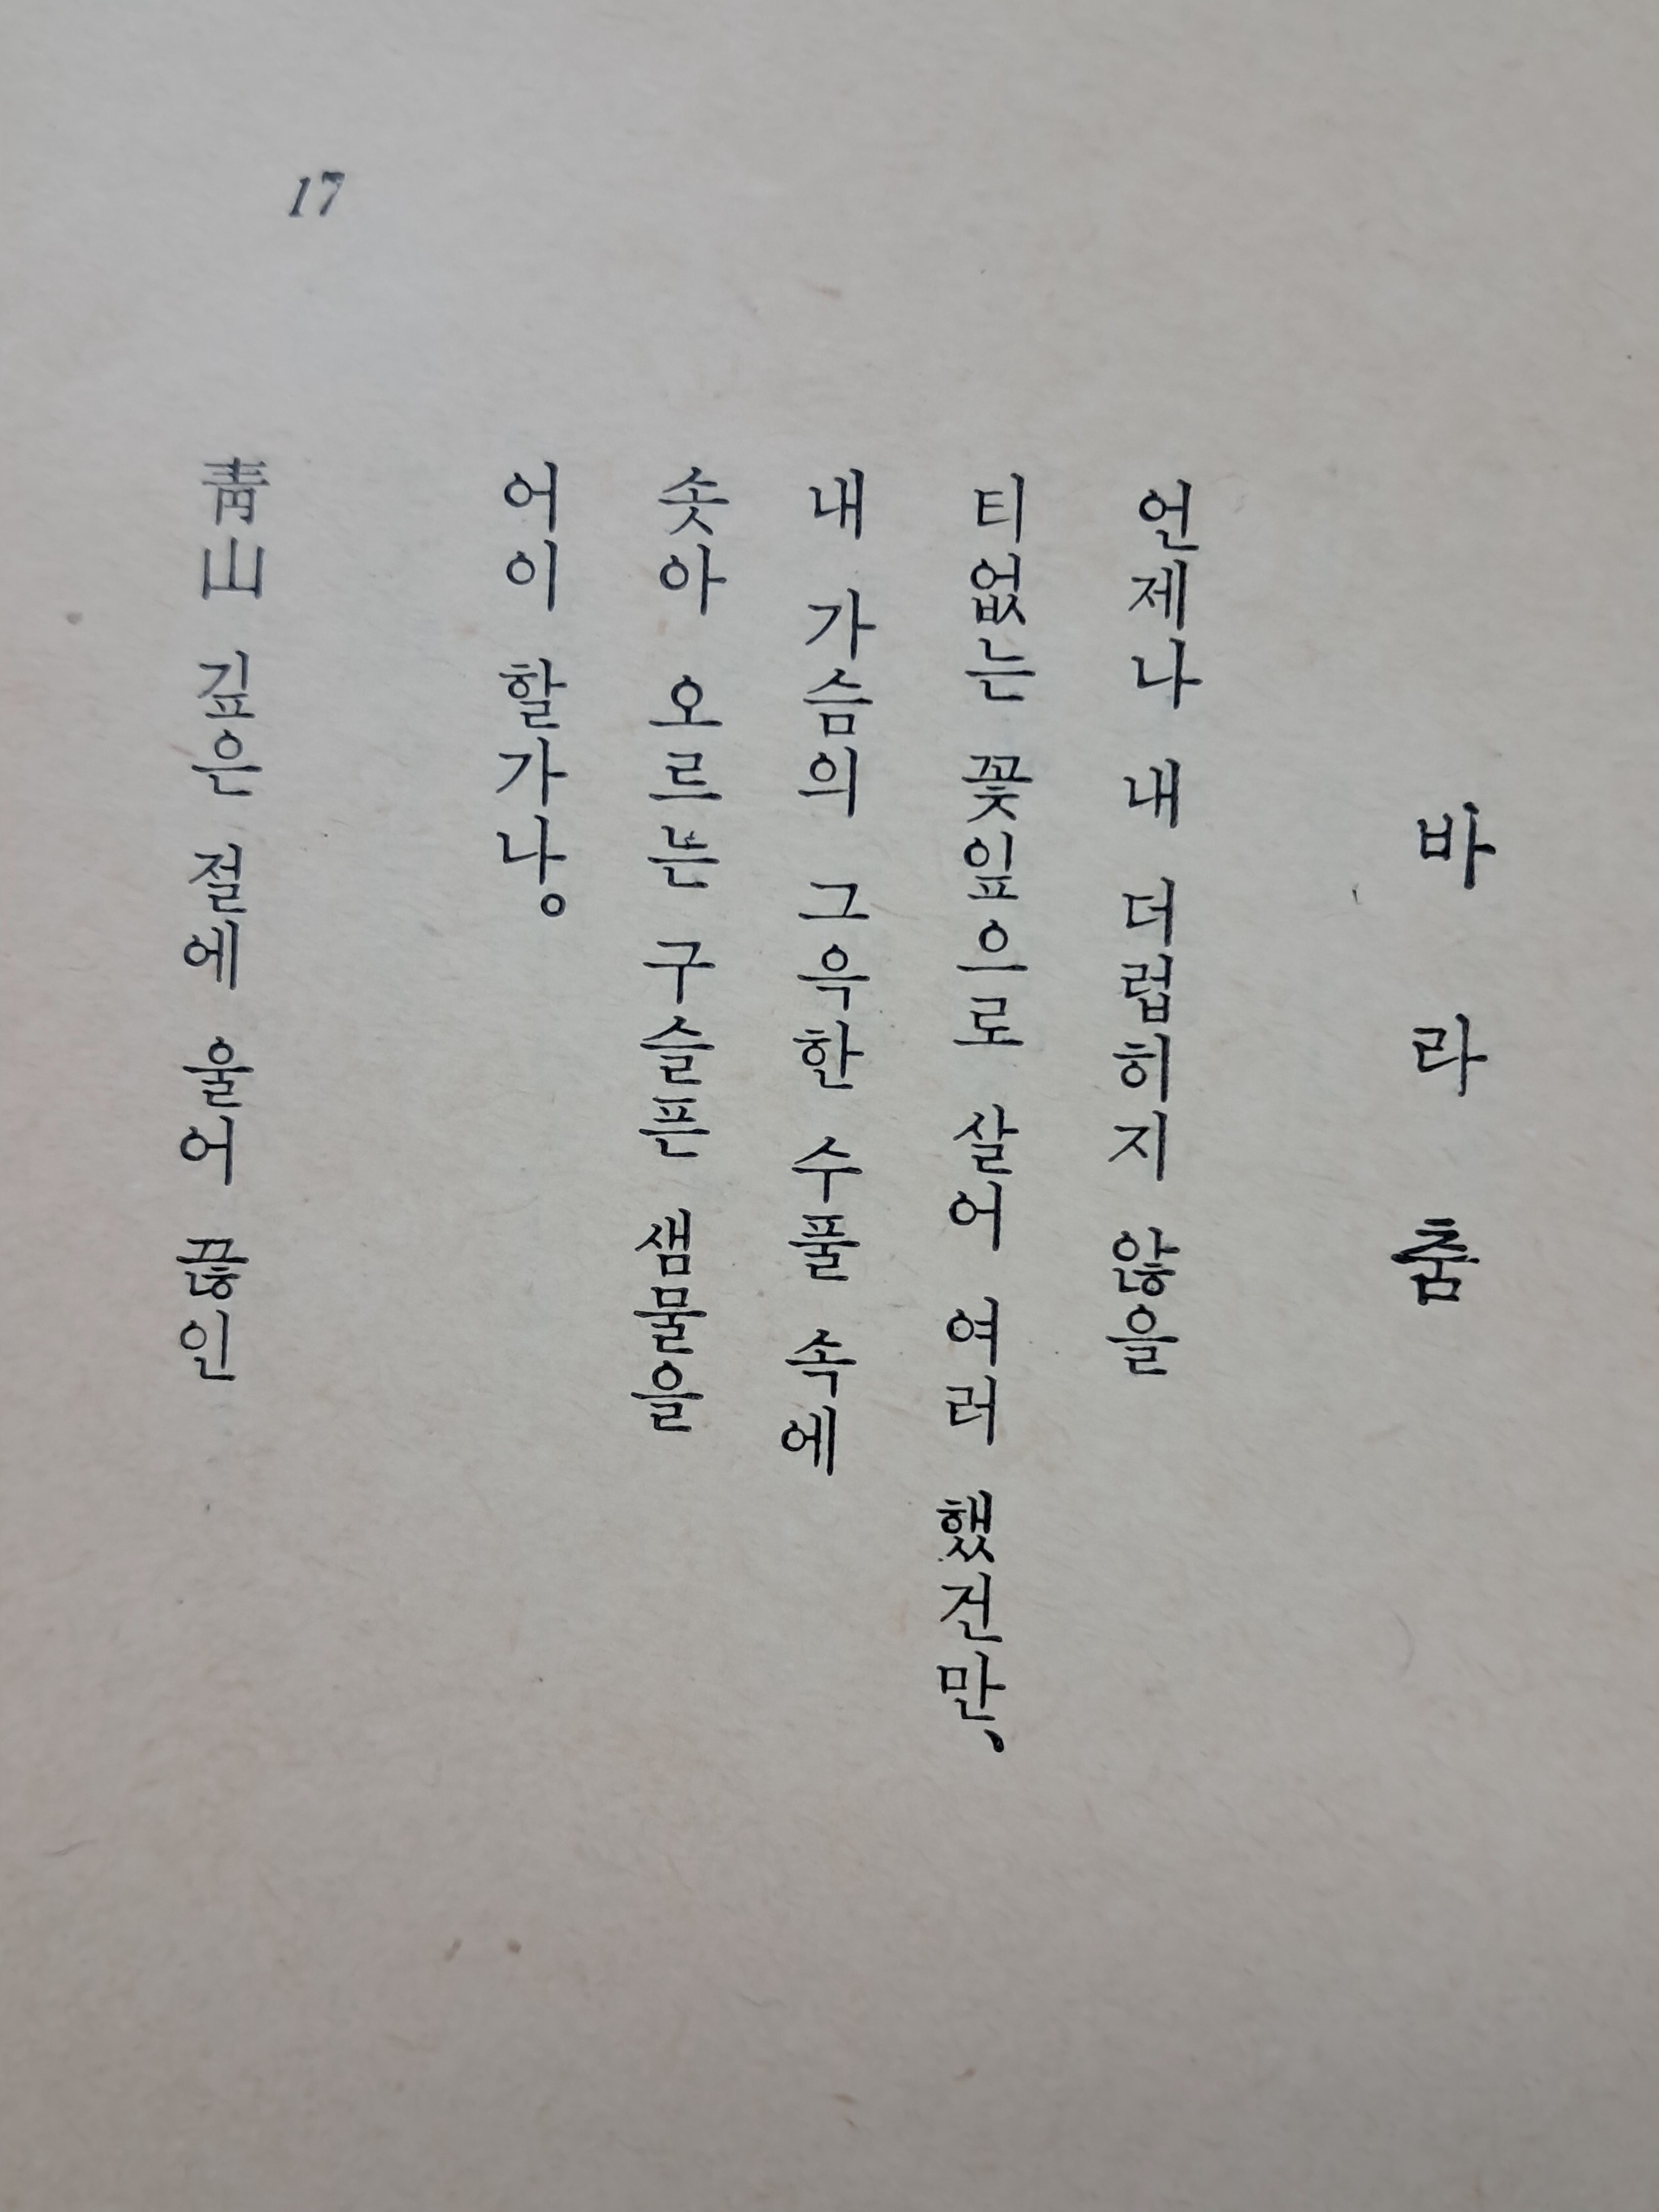 바라춤
언제나 내 더럽히지 않을
티없는 꽃잎으로 살어 여러 했건만、
내 가슴의 그윽한 수풀 속에
솟아 오르는 구슬픈 샘물을
어이 할가나。
靑山 깊은 절에 울어 끊인
17